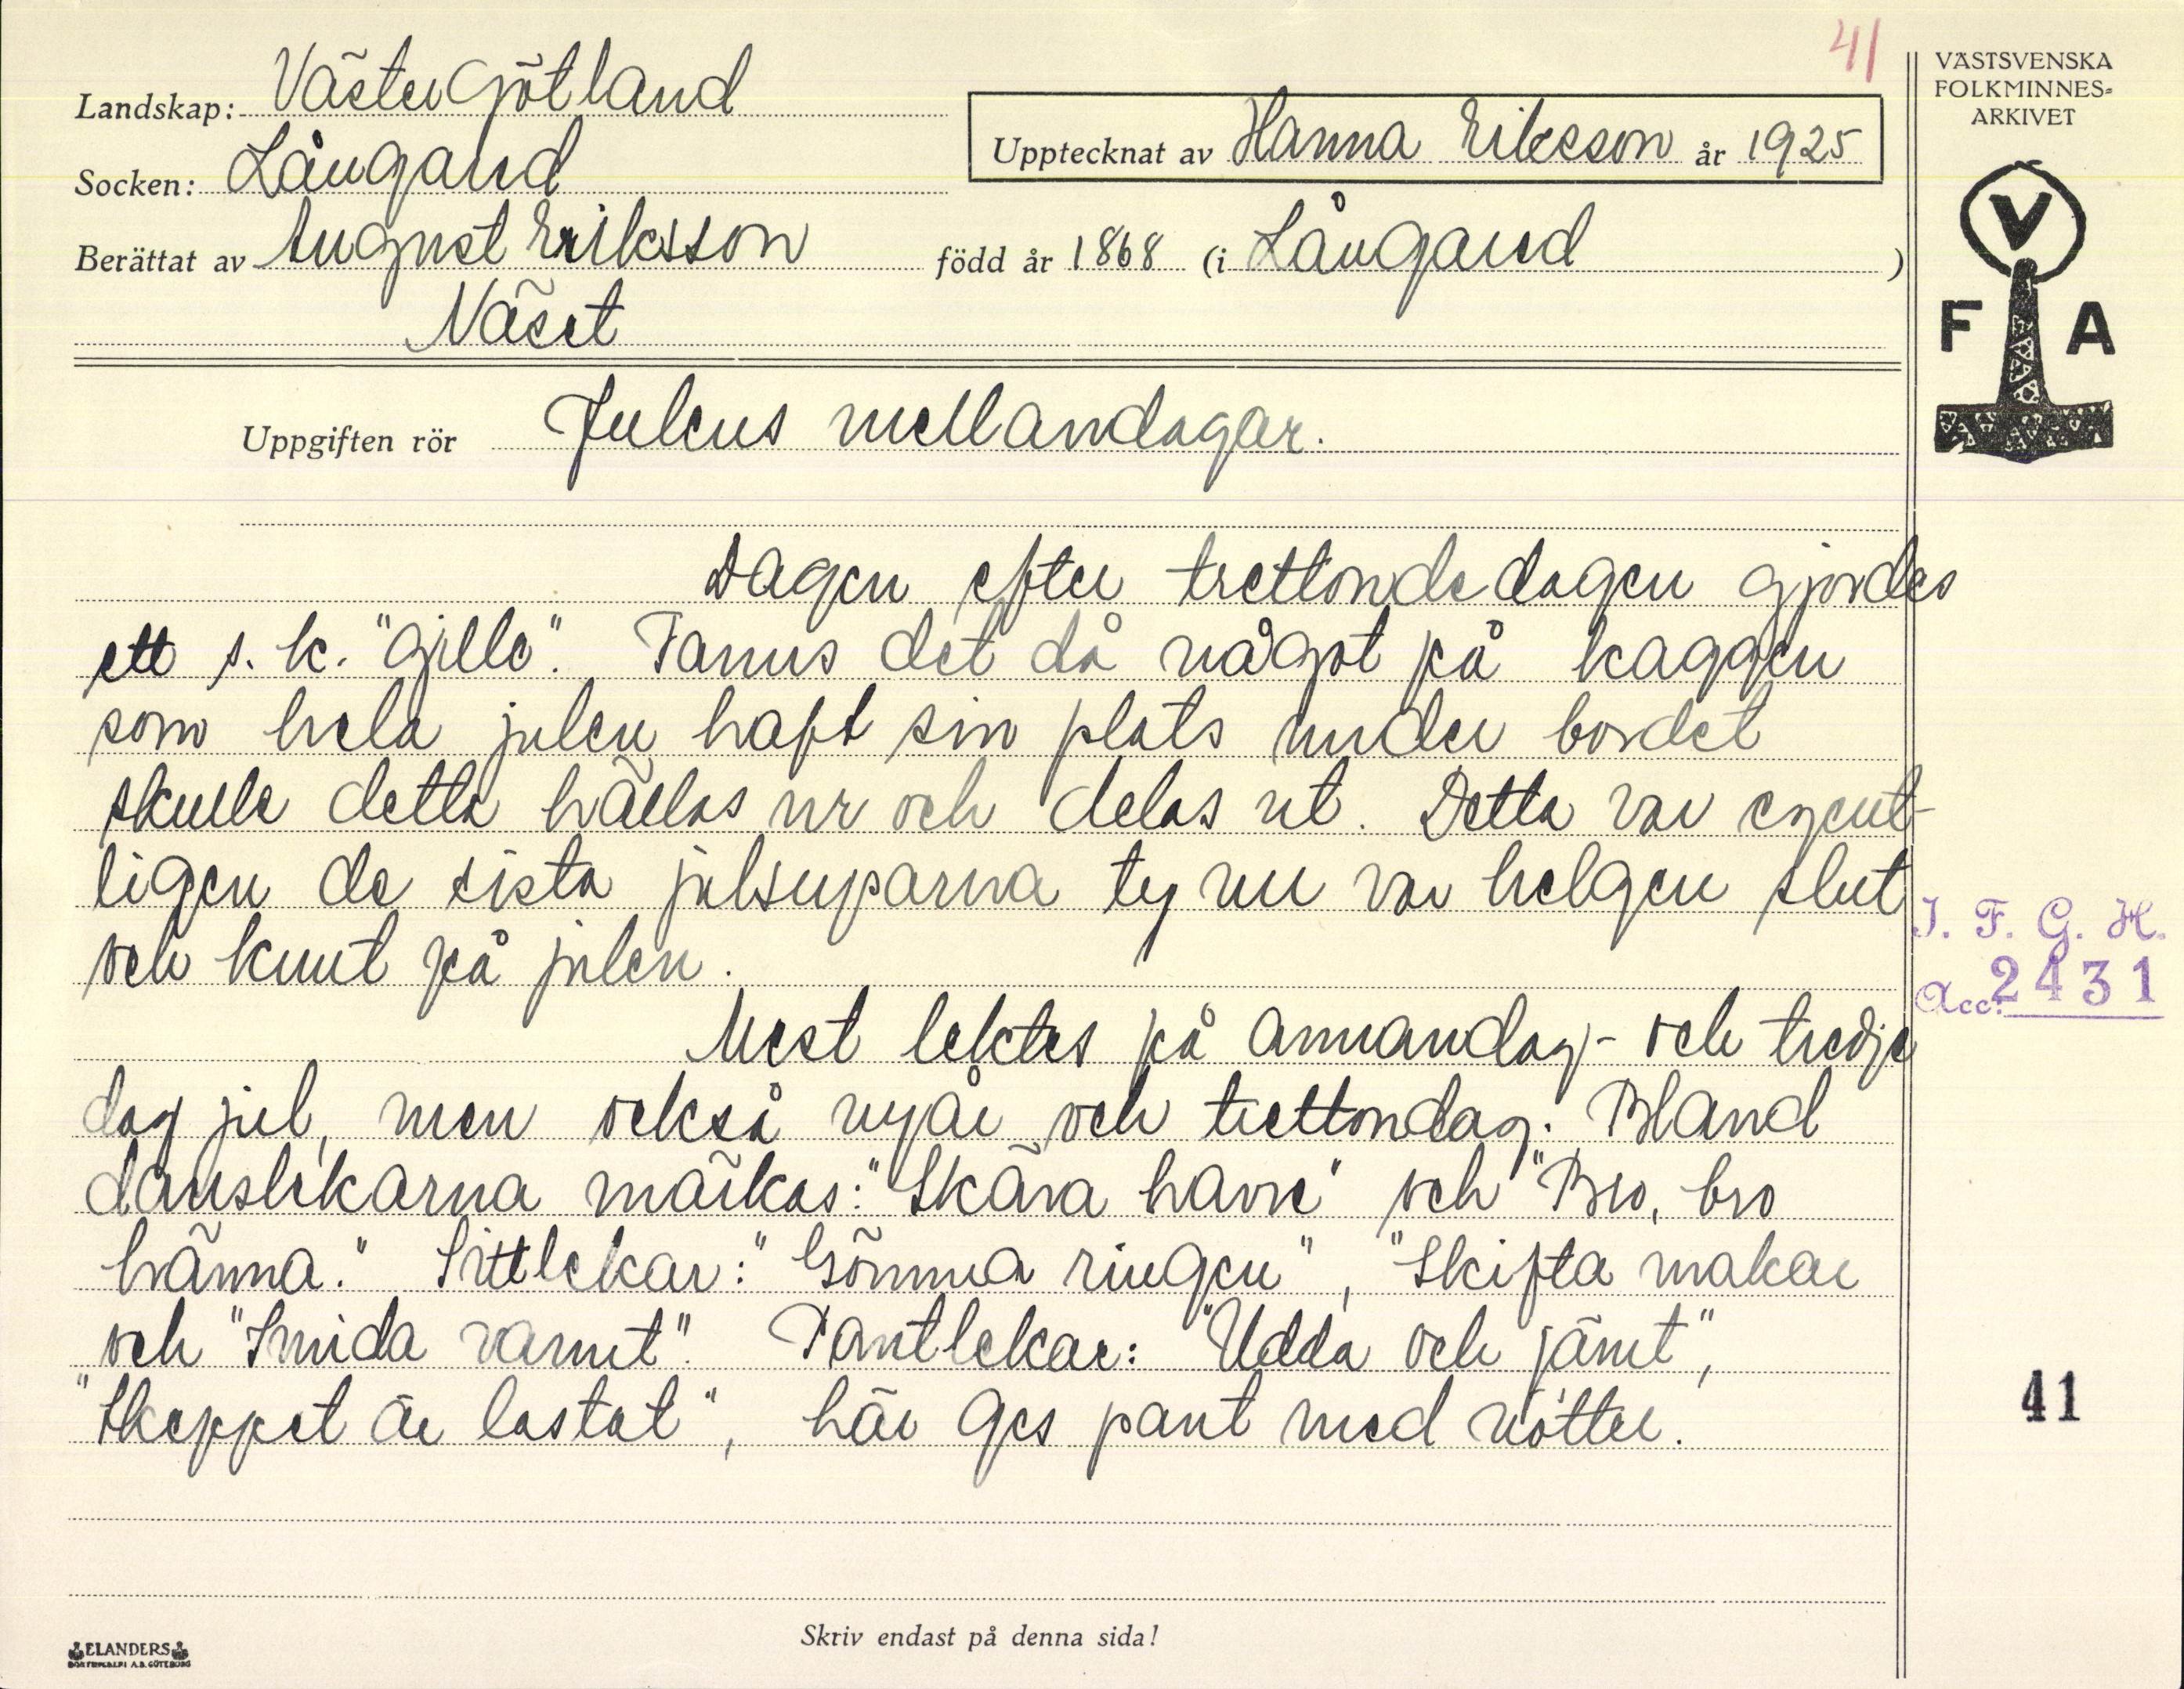 41
VÄSTSVENSKA
FOLKMINNES=
ARKIVET
V
F A
Landskap: Västergötland
Upptecknat av Hanna Eriksson år 1925
Socken: Långared
Berättat av August Eriksson född år 1868 (i Långared )
Näset
Uppgiften rör Julens mellandagar.
Dagen efter trettondedagen gjordes
ett s. k. "gille". Fanns det då något på kaggen
som hela julen haft sin plats under bordet
skulle detta hällas ur och delas ut. Detta var egent-
ligen de sista julsuparna ty nu var helgen slut
och knut på julen.
Mest lektes på annandag- och tredje
dag jul, men också nyår och trettondag. Bland
danslekarna märkas: "Skära havre" och "Bro, bro
bränna." Sittlekar: "Gömma ringen", "Skifta makar
och "Smida varmt". Pantlekar: "Udda och jämt",
"Skeppet är lastat", här ges pant med nötter.
I. F. G. H.
Acc. 2431
41
Skriv endast på denna sida!
ELANDERS
BOKTRYCKERI A.B. GÖTEBORG